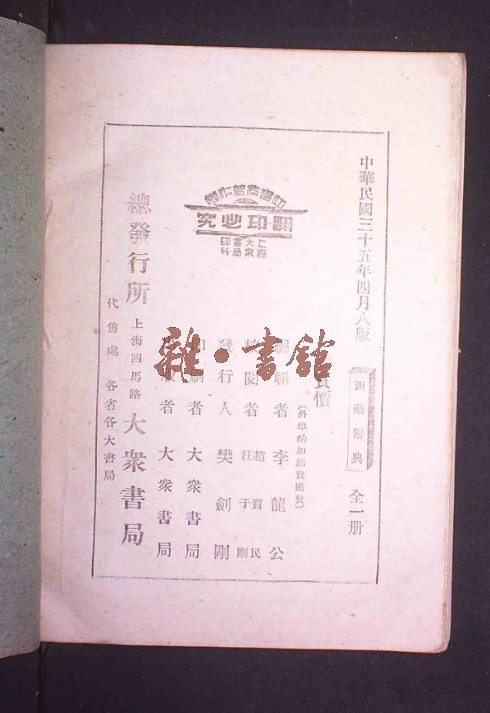 中華民國三十五年四月八版
西藥辭典
全一册
實價
（外埠酌加郵費匯費）
編輯者 李龍公
校閱者 趙賓民 汪于剛
發行人 樊劍剛
印刷者 大衆書局
發行者 大衆書局
總發行所 上海四馬路 大衆書局
代售處 各省各大書局
翻印必究
上海
大衆
書局
印行
雜·書館